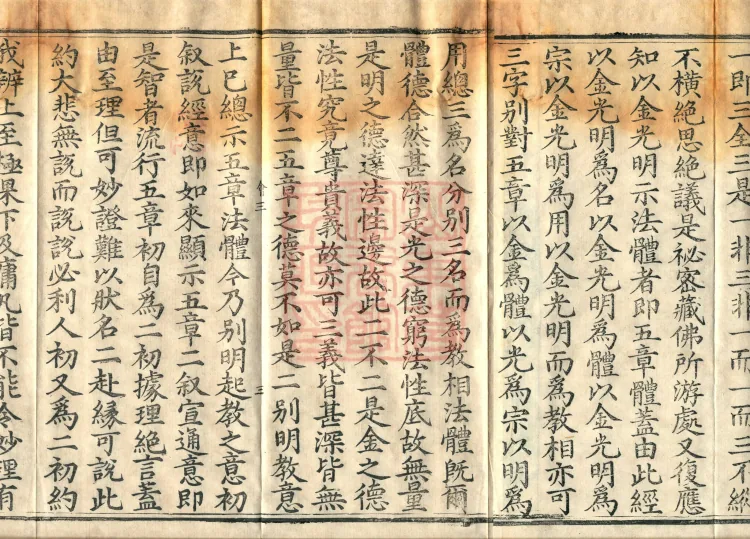 一即三全三是一非三非一而一而三不縱
不橫絕思絕議是祕密藏佛所游處又復應
知以金光明示法體者即五章體蓋由此經
以金光明爲名以金光明爲體以金光明爲
宗以金光明爲用以金光明而爲教相亦可
三字别對五章以金爲體以光爲宗以明爲
用總三爲名分别三名而爲教相法體旣爾
體德合然甚深是光之德窮法性底故無量
是明之德達法性邊故此二不二是金之德
法性究竟尊貴義故亦可三義皆甚深皆無
量皆不二五章之德莫不如是二别明教意
上已總示五章法體今乃别明起教之意初
叙說經意即如來顯示五章二叙宣通意即
是智者流行五章初自為二初據理絕言蓋
由至理但可妙證難以狀名二赴緣可說此
約大悲無說而說說必利人初又爲二初約
我辨上至極果下及庸凡皆不能令妙理有
三